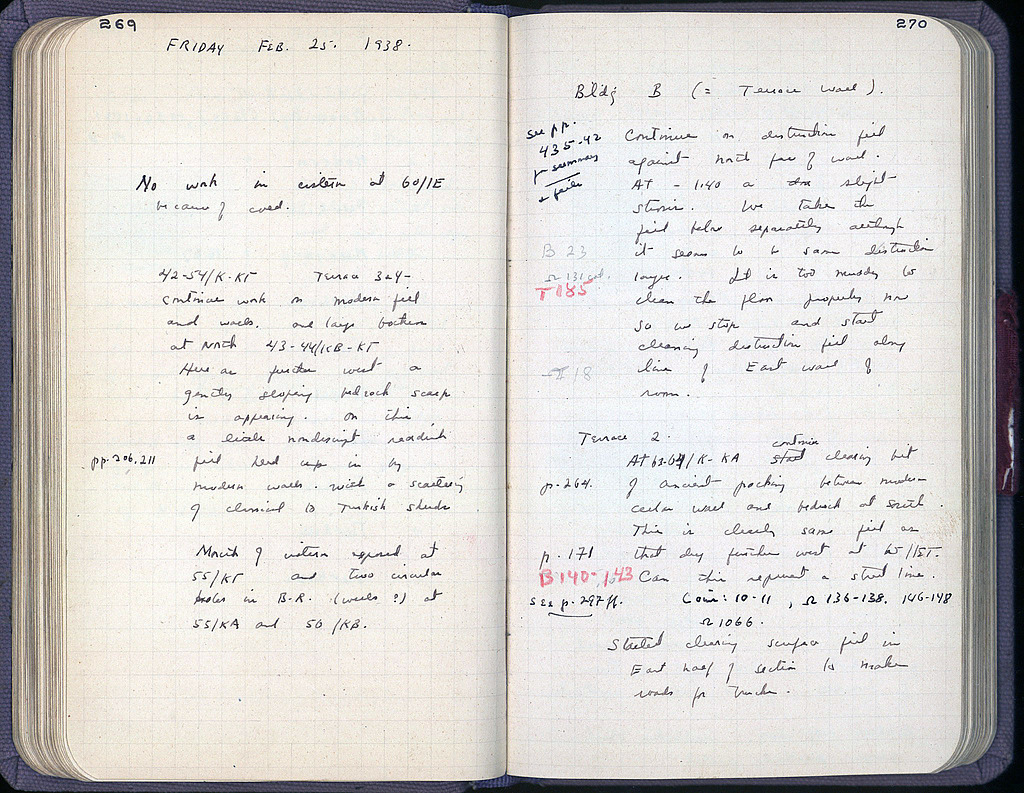 269
FRIDAY FEB. 25. 1938.
No work in cistern at 60/IE
because of cold.
42-54/K-KΓ Terrace 3&4-
continue work on modern fill
and walls. one large bothros
at North 43-44/KB-KΓ
Here as further west a
gently sloping bedrock scarp
is appearing. On this
a little nondescript reddish
pp. 206, 211
fill held up in by
modern walls. with a scattering
of classical to Turkish sherds
Mouth of cistern exposed at
55/KΓ and two circular
holes in B-R. (wells?) at
55/KA and 50/KB.
270
Bldg B (= Terrace wall).
see pp.
435-42
for summary
Continue on destruction fill
against north face of wall.
At -1.40 a slight
strosis. We take the
fill below separately although
B 23
it seems to be same destruction
Ω 131
longer. It is too muddy to
T 185
clean the floor properly now
so we stop and start
clearing destruction fill along
18
line of East wall of
room.
Terrace 2.
continue
At 63-64/K-KA clearing bit
p. 264.
of ancient packing between modern
cellar wall and bedrock at South.
This is clearly same fill as
p. 171
that dug further west at
B 140-143
Can this represent a street line.
see p. 297 ff.
Coins: 10-11, Ω 136-138. 146-148
Ω 1066.
Started clearing surface fill in
East half of section to make
roads for trucks.